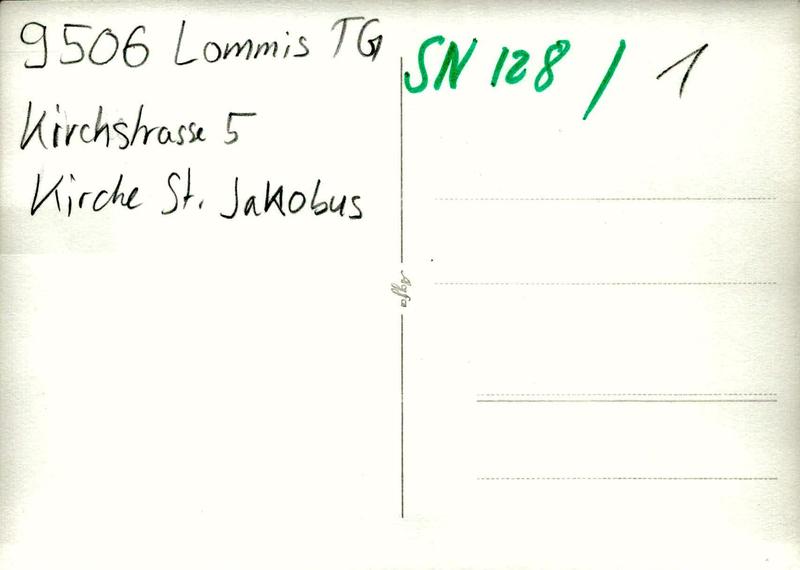 9506 Lommis TG
Kirchstrasse 5
Kirche St. Jakobus
SN 128 / 1
Agfa